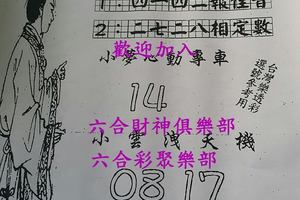 1:四一四二報佳音
2:二七二八相定數
歡迎加入
小夢心動專車
台灣樂透彩
選號參考用
14
六合財神俱樂部
小雲洩天機
六合彩聚樂部
08 17